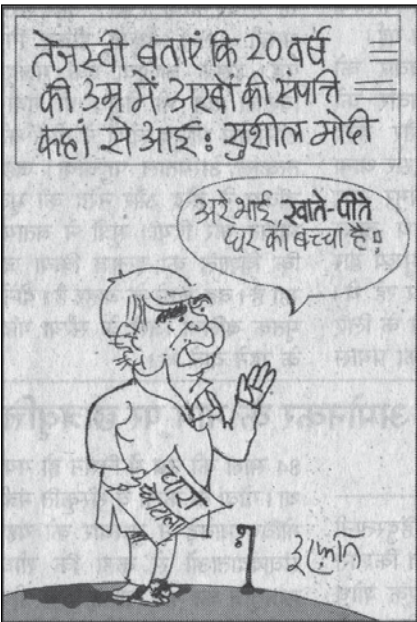 तेजस्वी बताएं कि 20 वर्ष
की उम्र में अरबों की संपत्ति
कहां से आई : सुशील मोदी
अरे भाई, खाते-पीते
घर का बच्चा है।
चारा
घोटाला
इरफ़ान